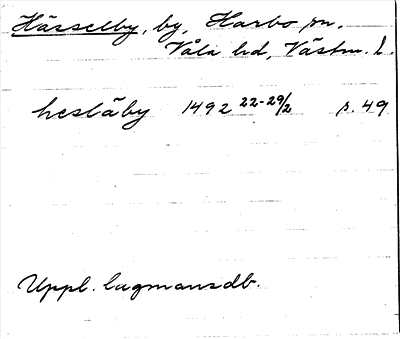 Hässelby, by, Harbo sn.
Våla hd, Västm. l.
hesläby 1492 22-29/2 s. 49
Uppl. lagmansdb.